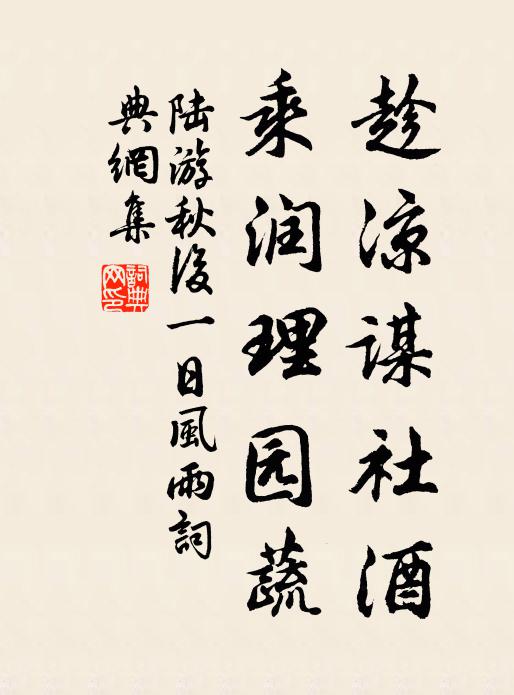 趁凉谋社酒
乘润理园蔬
陆游秋後一日風雨詞
典網集
詞典
网印